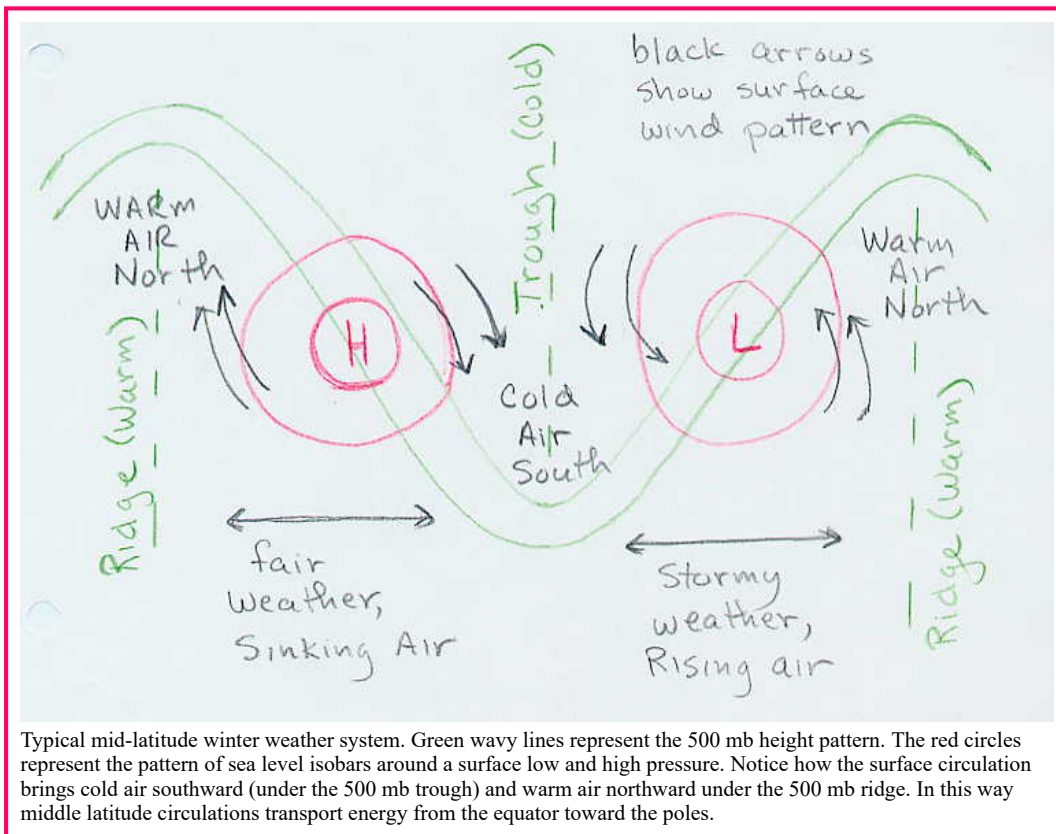 black arrows
show surface
wind pattern
Trough (cold)
WARM
AIR
North
Ridge (Warm)
H
Cold
Air
South
L
Warm
Air
North
Ridge (Warm)
fair
weather,
Sinking Air
Stormy
weather,
Rising air
Typical mid-latitude winter weather system. Green wavy lines represent the 500 mb height pattern. The red circles
represent the pattern of sea level isobars around a surface low and high pressure. Notice how the surface circulation
brings cold air southward (under the 500 mb trough) and warm air northward under the 500 mb ridge. In this way
middle latitude circulations transport energy from the equator toward the poles.